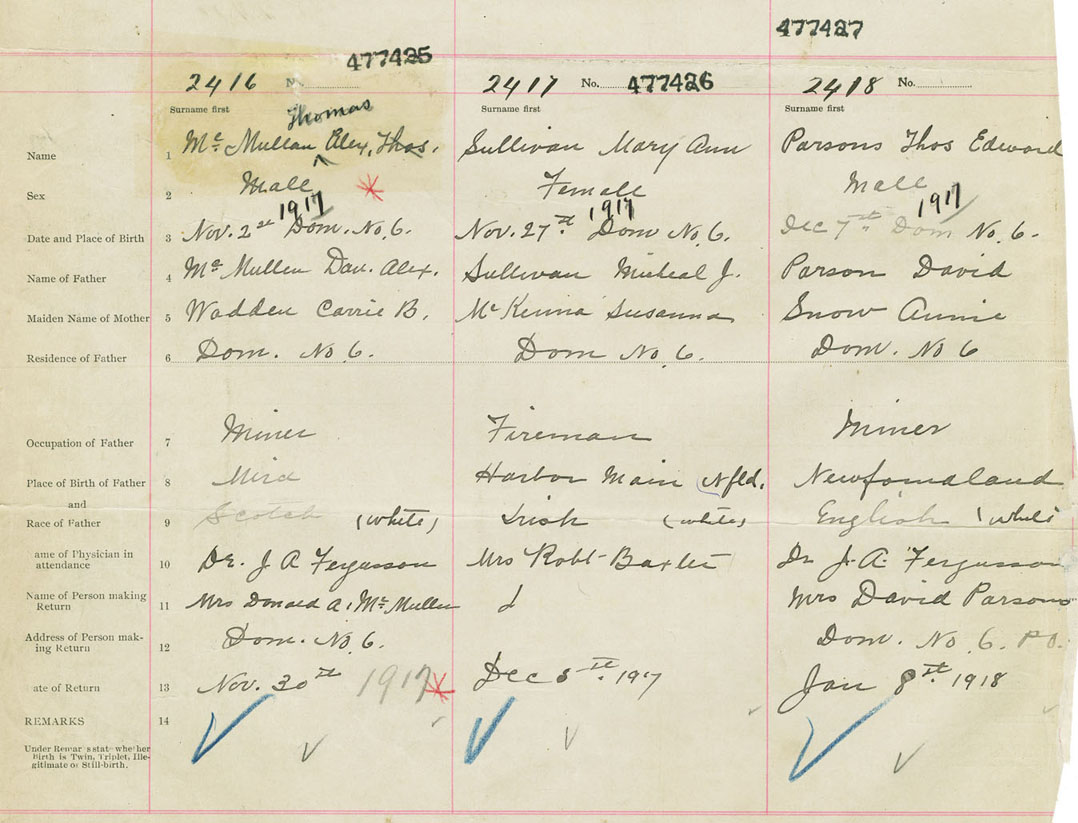 477427
477425
2416 No.
2417 No. 477426
2418 No.
Surname first Surname first Surname first
Thomas
Name 1 Mc Mullan Alex, Thos. Sullivan Mary Ann Parsons Thos Edward
Sex 2 Male Female Male
1917 1917 1917
Date and Place of Birth 3 Nov. 2st Dom. No. 6. Nov. 27st. Dom No. 6. Dec 7th. Dom No. 6.
Name of Father 4 Mc Mullen Dan. Alex. Sullivan Micheal J. Parson David
Maiden Name of Mother 5 Wadden Carrie B. McKenna Susanna Snow Annie
Residence of Father 6 Dom. No 6. Dom No 6. Dom. No 6
Occupation of Father 7 Miner Fireman Miner
Place of Birth of Father 8 Mira Harbor Main (Nfld. Newfomaland
and
Race of Father 9 Scotch (white) Irish (white) English (white
ame of Physician in
attendance 10 Dr. J A Fergusson Mrs Robt Baxter Dr J. A. Fergusson
Name of Person making
Return 11 Mrs Donald A. Mc Mullen Mrs David Parsons
Address of Person mak-
ing Return 12 Dom. No 6. Dom. No 6. P.O.
ate of Return 13 Nov. 30th 1917 Dec 5th. 1917 Jan 8th. 1918
REMARKS 14
Under Remar s stat whether
Birth is Twin, Triplet, Ille-
gitimate or Still-birth.